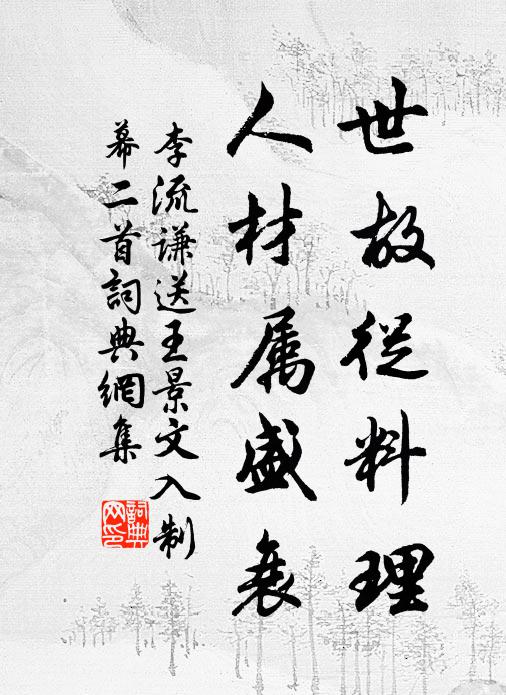 世故從料理
人材属盛衰
李流谦送王景文入制
幕二首詞典網集
詞典网印